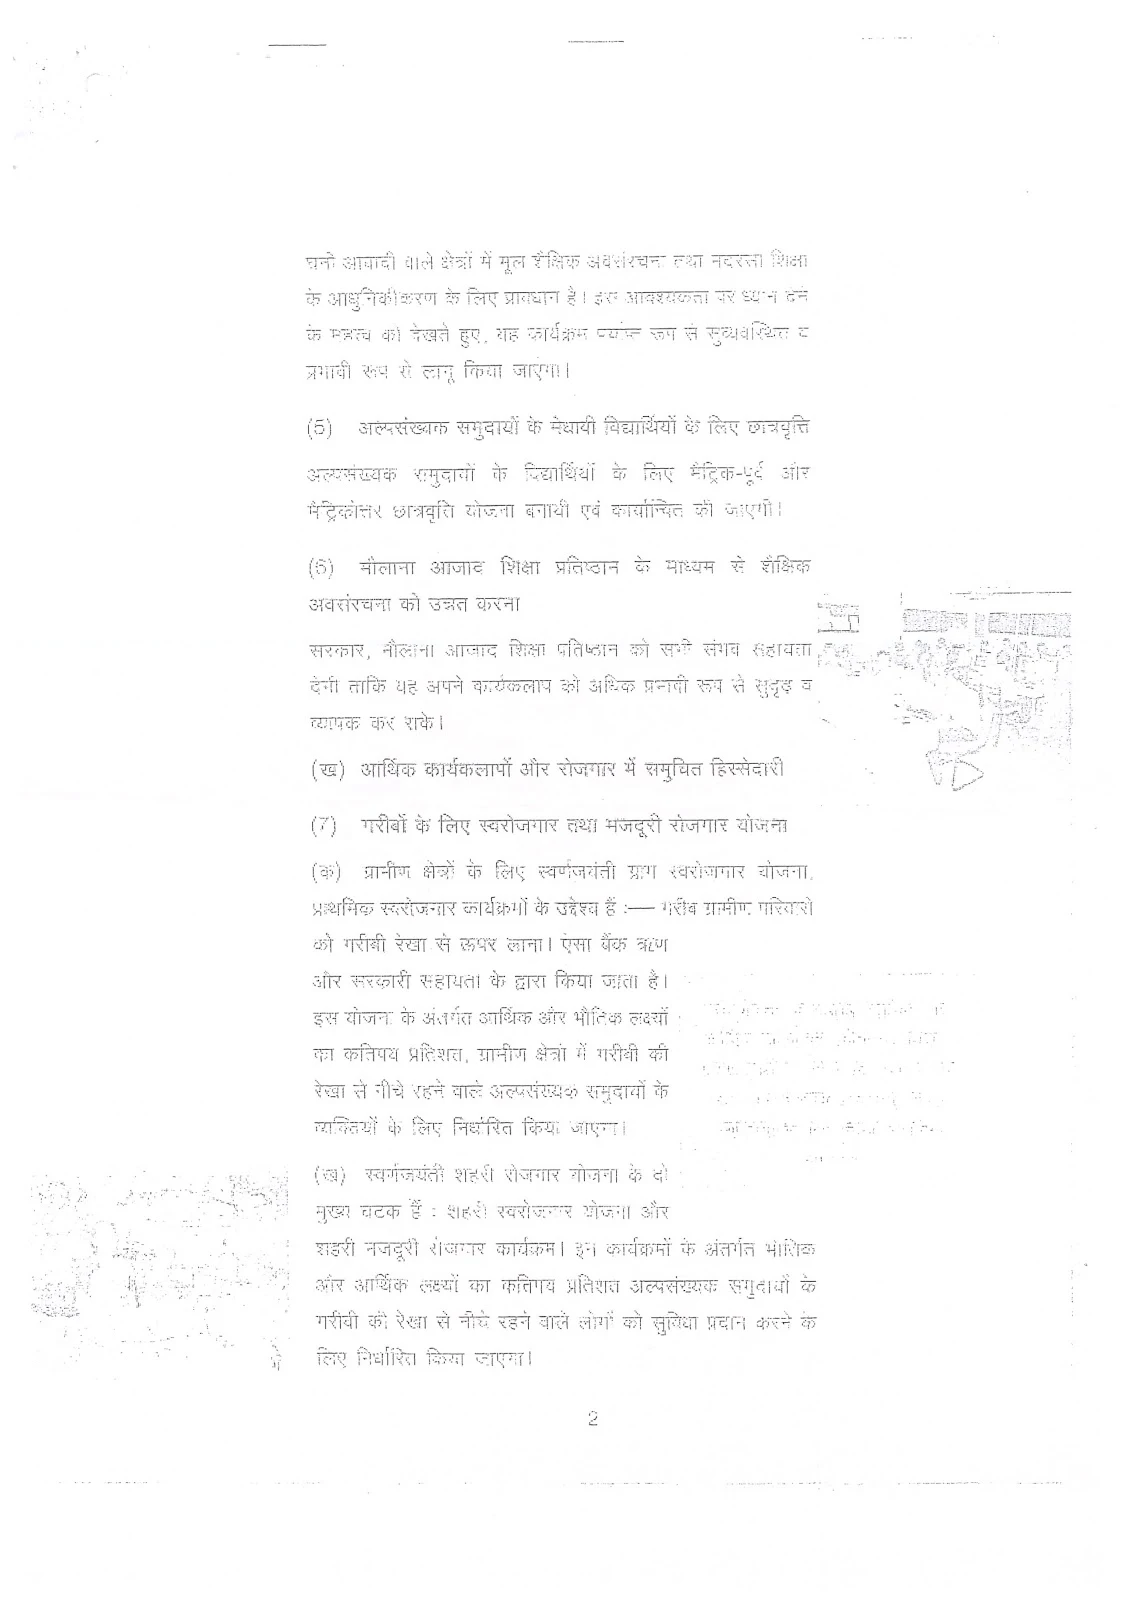 घनी आबादी वाले क्षेत्रों में मूल शैक्षिक अवसंरचना तथा मदरसा शिक्षा
के आधुनिकीकरण के लिए प्रावधान है। इस आवश्यकता पर ध्यान देने
के महत्व को देखते हुए, यह कार्यक्रम पर्याप्त रूप से सुव्यवस्थित व
प्रभावी रूप से लागू किया जाएगा।
(5) अल्पसंख्यक समुदायों के मेधावी विद्यार्थियों के लिए छात्रवृत्ति
अल्पसंख्यक समुदायों के विद्यार्थियों के लिए मैट्रिक-पूर्व और
मैट्रिकोत्तर छात्रवृत्ति योजना बनायी एवं कार्यान्वित की जाएगी।
(6) मौलाना आजाद शिक्षा प्रतिष्ठान के माध्यम से शैक्षिक
अवसंरचना को उन्नत करना
सरकार, मौलाना आजाद शिक्षा प्रतिष्ठान को सभी संभव सहायता
देगी ताकि यह अपने कार्यकलाप को अधिक प्रभावी रूप से सुदृढ़ व
व्यापक कर सके।
(ख) आर्थिक कार्यकलापों और रोजगार में समुचित हिस्सेदारी
(7) गरीबों के लिए स्वरोजगार तथा मजदूरी रोजगार योजना
(क) ग्रामीण क्षेत्रों के लिए स्वर्णजयंती ग्राम स्वरोजगार योजना,
प्राथमिक स्वरोजगार कार्यक्रमों के उद्देश्य हैं :— गरीब ग्रामीण परिवारों
को गरीबी रेखा से ऊपर लाना। ऐसा बैंक ऋण
और सरकारी सहायता के द्वारा किया जाता है।
इस योजना के अंतर्गत आर्थिक और भौतिक लक्ष्यों
का कतिपय प्रतिशत, ग्रामीण क्षेत्रों में गरीबी की
रेखा से नीचे रहने वाले अल्पसंख्यक समुदायों के
व्यक्तियों के लिए निर्धारित किया जाएगा।
(ख) स्वर्णजयंती शहरी रोजगार योजना के दो
मुख्य घटक हैं : शहरी स्वरोजगार योजना और
शहरी मजदूरी रोजगार कार्यक्रम। इन कार्यक्रमों के अंतर्गत भौतिक
और आर्थिक लक्ष्यों का कतिपय प्रतिशत अल्पसंख्यक समुदायों के
गरीबी की रेखा से नीचे रहने वाले लोगों को सुविधा प्रदान करने के
लिए निर्धारित किया जाएगा।
2